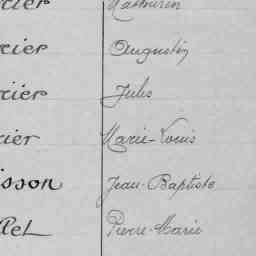 rier Mathurin
rier Augustin
rier Jules
rier Marie-Louis
isson Jean-Baptiste
llet Pierre-Marie